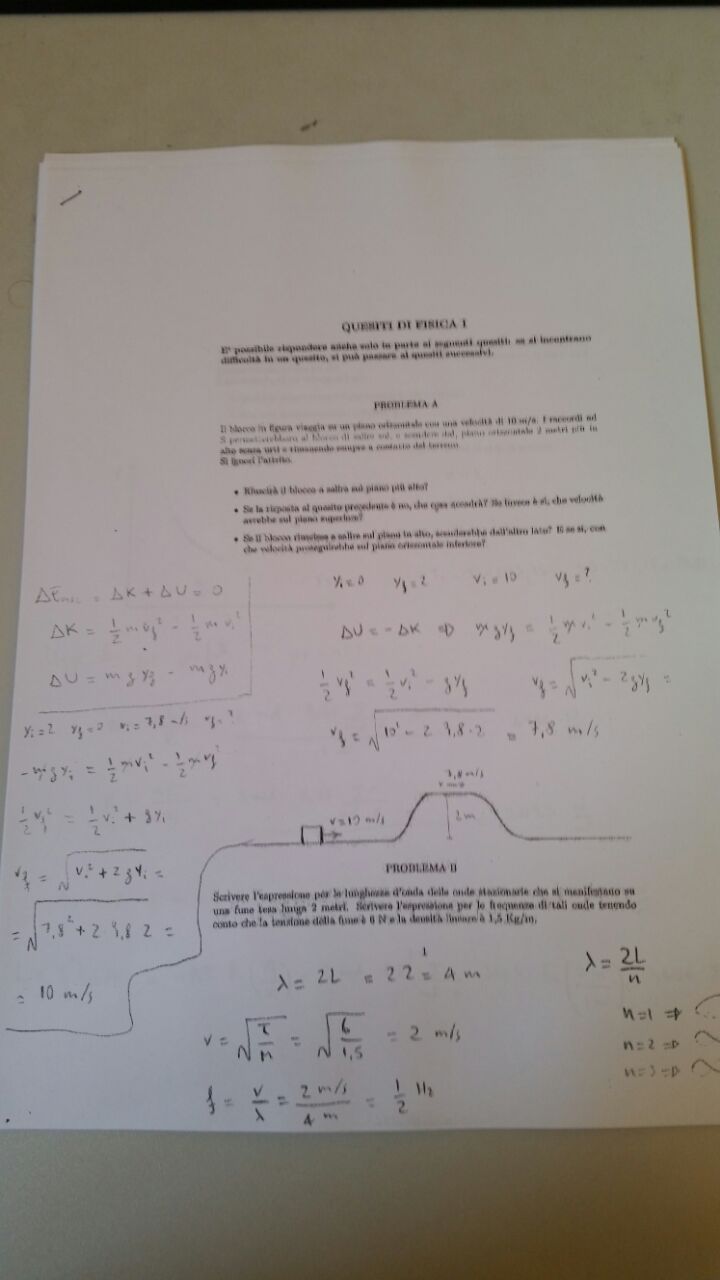 QUESITI DI FISICA I
E' possibile rispondere anche solo in parte ai seguenti quesiti: se si incontrano
difficoltà in un quesito, si può passare ai quesiti successivi.
PROBLEMA A
Il blocco in figura viaggia su un piano orizzontale con una velocità di 10 m/s. I raccordi ad
S permetterebbero al blocco di salire sul, e scendere dal, piano orizzontale 2 metri più in
alto senza urti e rimanendo sempre a contatto del terreno.
Si ignori l'attrito.
• Riuscirà il blocco a salire sul piano più alto?
• Se la risposta al quesito precedente è no, che cosa accadrà? Se invece è si, che velocità
avrebbe sul piano superiore?
• Se il blocco riuscisse a salire sul piano in alto, scenderebbe dall'altro lato? E se si, con
che velocità proseguirebbe sul piano orizzontale inferiore?
yi=0 yf=2 vi=10 vf=?
ΔEmec = ΔK + ΔU = 0
ΔK = 1/2 m vf² - 1/2 m vi²
ΔU = m g yf - m g yi
ΔU = -ΔK ⇒ m g yf = 1/2 m vi² - 1/2 m vf²
1/2 vf² = 1/2 vi² - g yf vf = √(vi² - 2 g yf) =
vf = √(10² - 2 9,8 · 2) = 7,8 m/s
yi=2 yf=0 vi=7,8 m/s vf=?
-m g yi = 1/2 m vi² - 1/2 m vf²
1/2 vf² = 1/2 vi² + g yi
vf = √(vi² + 2 g yi) =
= √(7,8² + 2 · 9,8 · 2) =
= 10 m/s
7,8 m/s
v=10 m/s
2m
PROBLEMA B
Scrivere l'espressione per le lunghezze d'onda delle onde stazionarie che si manifestano su
una fune tesa lunga 2 metri. Scrivere l'espressione per le frequenze di tali onde tenendo
conto che la tensione della fune è 6 N e la densità lineare è 1,5 Kg/m.
λ = 2L = 2 2 = 4 m
λ = 2L/n
v = √(T/μ) = √(6/1,5) = 2 m/s
n=1 ⇒
n=2 ⇒
n=3 ⇒
f = v/λ = 2 m/s / 4 m = 1/2 Hz